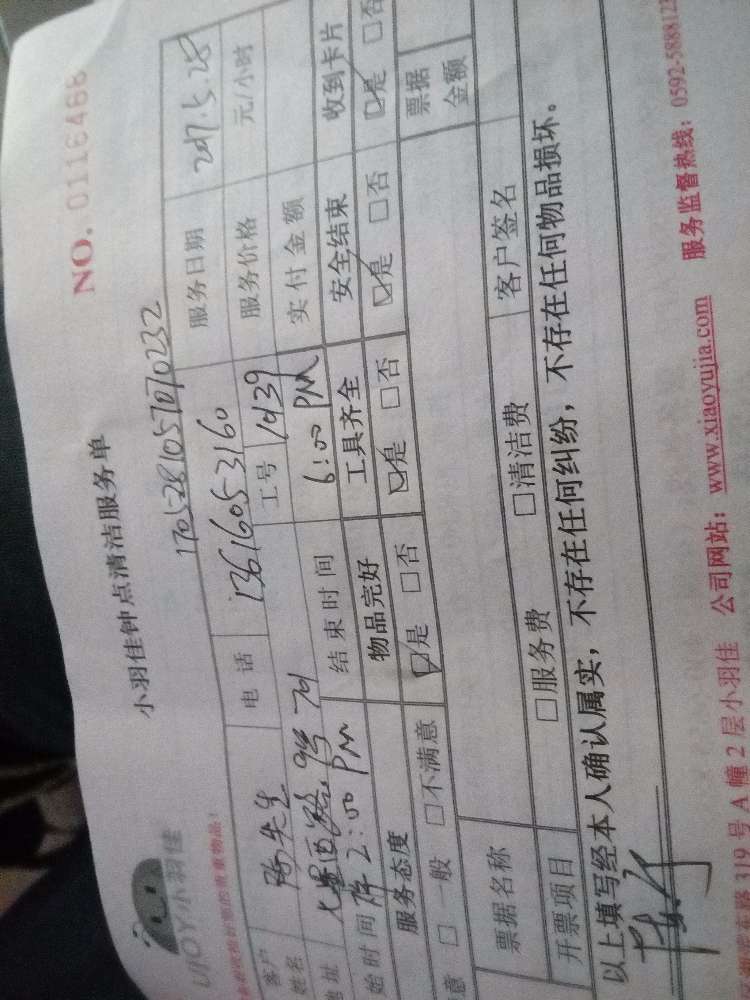 UJOY小羽佳
小羽佳钟点清洁服务单
NO. 0116466
1705281057070232
客户姓名 陈先生 电话 13616053160 服务日期 2017.5.28
地址 工号 1039 服务价格 元/小时
始时间 2:00 PM 结束时间 6:00 PM 实付金额
服务态度 物品完好 工具齐全 安全结束 收到卡片
意 □一般 □不满意 ☑是 □否 ☑是 □否 ☑是 □否 ☑是 □否
票据金额
票据名称
开票项目 □服务费 □清洁费 客户签名
以上填写经本人确认属实，不存在任何纠纷，不存在任何物品损坏。
路319号A幢2层小羽佳 公司网站：www.xiaoyujia.com 服务监督热线：0592-5888123